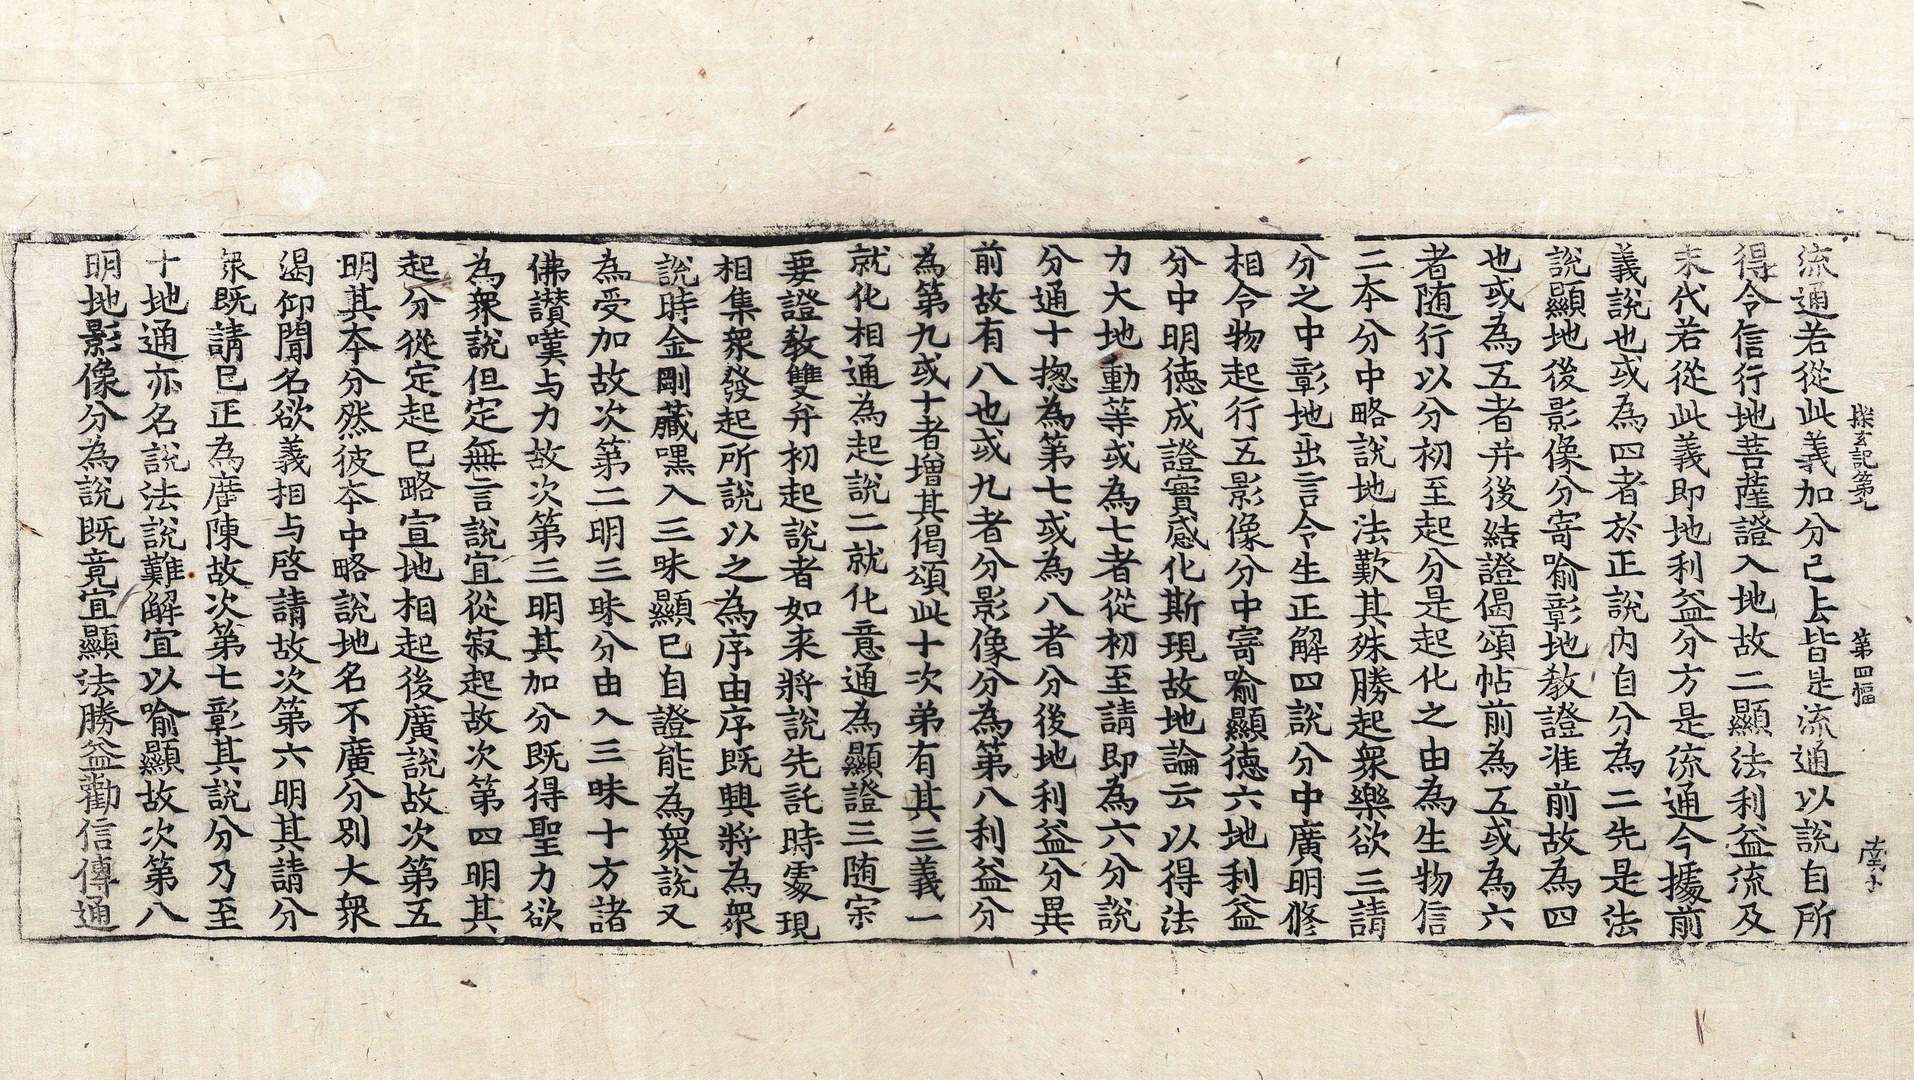 探玄記第九　第四幅　南才
流通若從此義加分已去皆是流通以說自所
得令信行地菩薩證入地故二顯法利益流及
末代若從此義即地利益分方是流通今據前
義說也或為四者於正說內自分為二先是法
說顯地後影像分寄喻彰地教證准前故為四
也或為五者并後結證偈頌帖前為五或為六
者随行以分初至起分是起化之由為生物信
二本分中略說地法歎其殊勝起衆樂欲三請
分之中彰地出言令生正解四說分中廣明修
相令物起行五影像分中寄喻顯德六地利益
分中明德成證實感化斯現故地論云以得法
力大地動等或為七者從初至請即為六分說
分通十揔為第七或為八者分後地利益分異
前故有八也或九者分影像分為第八利益分
為第九或十者增其偈頌此十次第有其三義一
就化相通為起說二就化意通為顯證三随宗
要證教雙弁初起說者如来將說先託時處現
相集衆發起所說以之為序由序既興將為衆
說時金剛藏嘿入三昧顯已自證能為衆說又
為受加故次第二明三昧分由入三昧十方諸
佛讃嘆与力故次第三明其加分既得聖力欲
為衆說但定無言說宜從寂起故次第四明其
起分從定起已略宣地相起後廣說故次第五
明其本分然彼本中略說地名不廣分別大衆
渴仰聞名欲義相与啓請故次第六明其請分
衆既請已正為廣陳故次第七彰其說分乃至
十地通亦名說法說難解宜以喻顯故次第八
明地影像分為說既竟宜顯法勝益勸信傳通